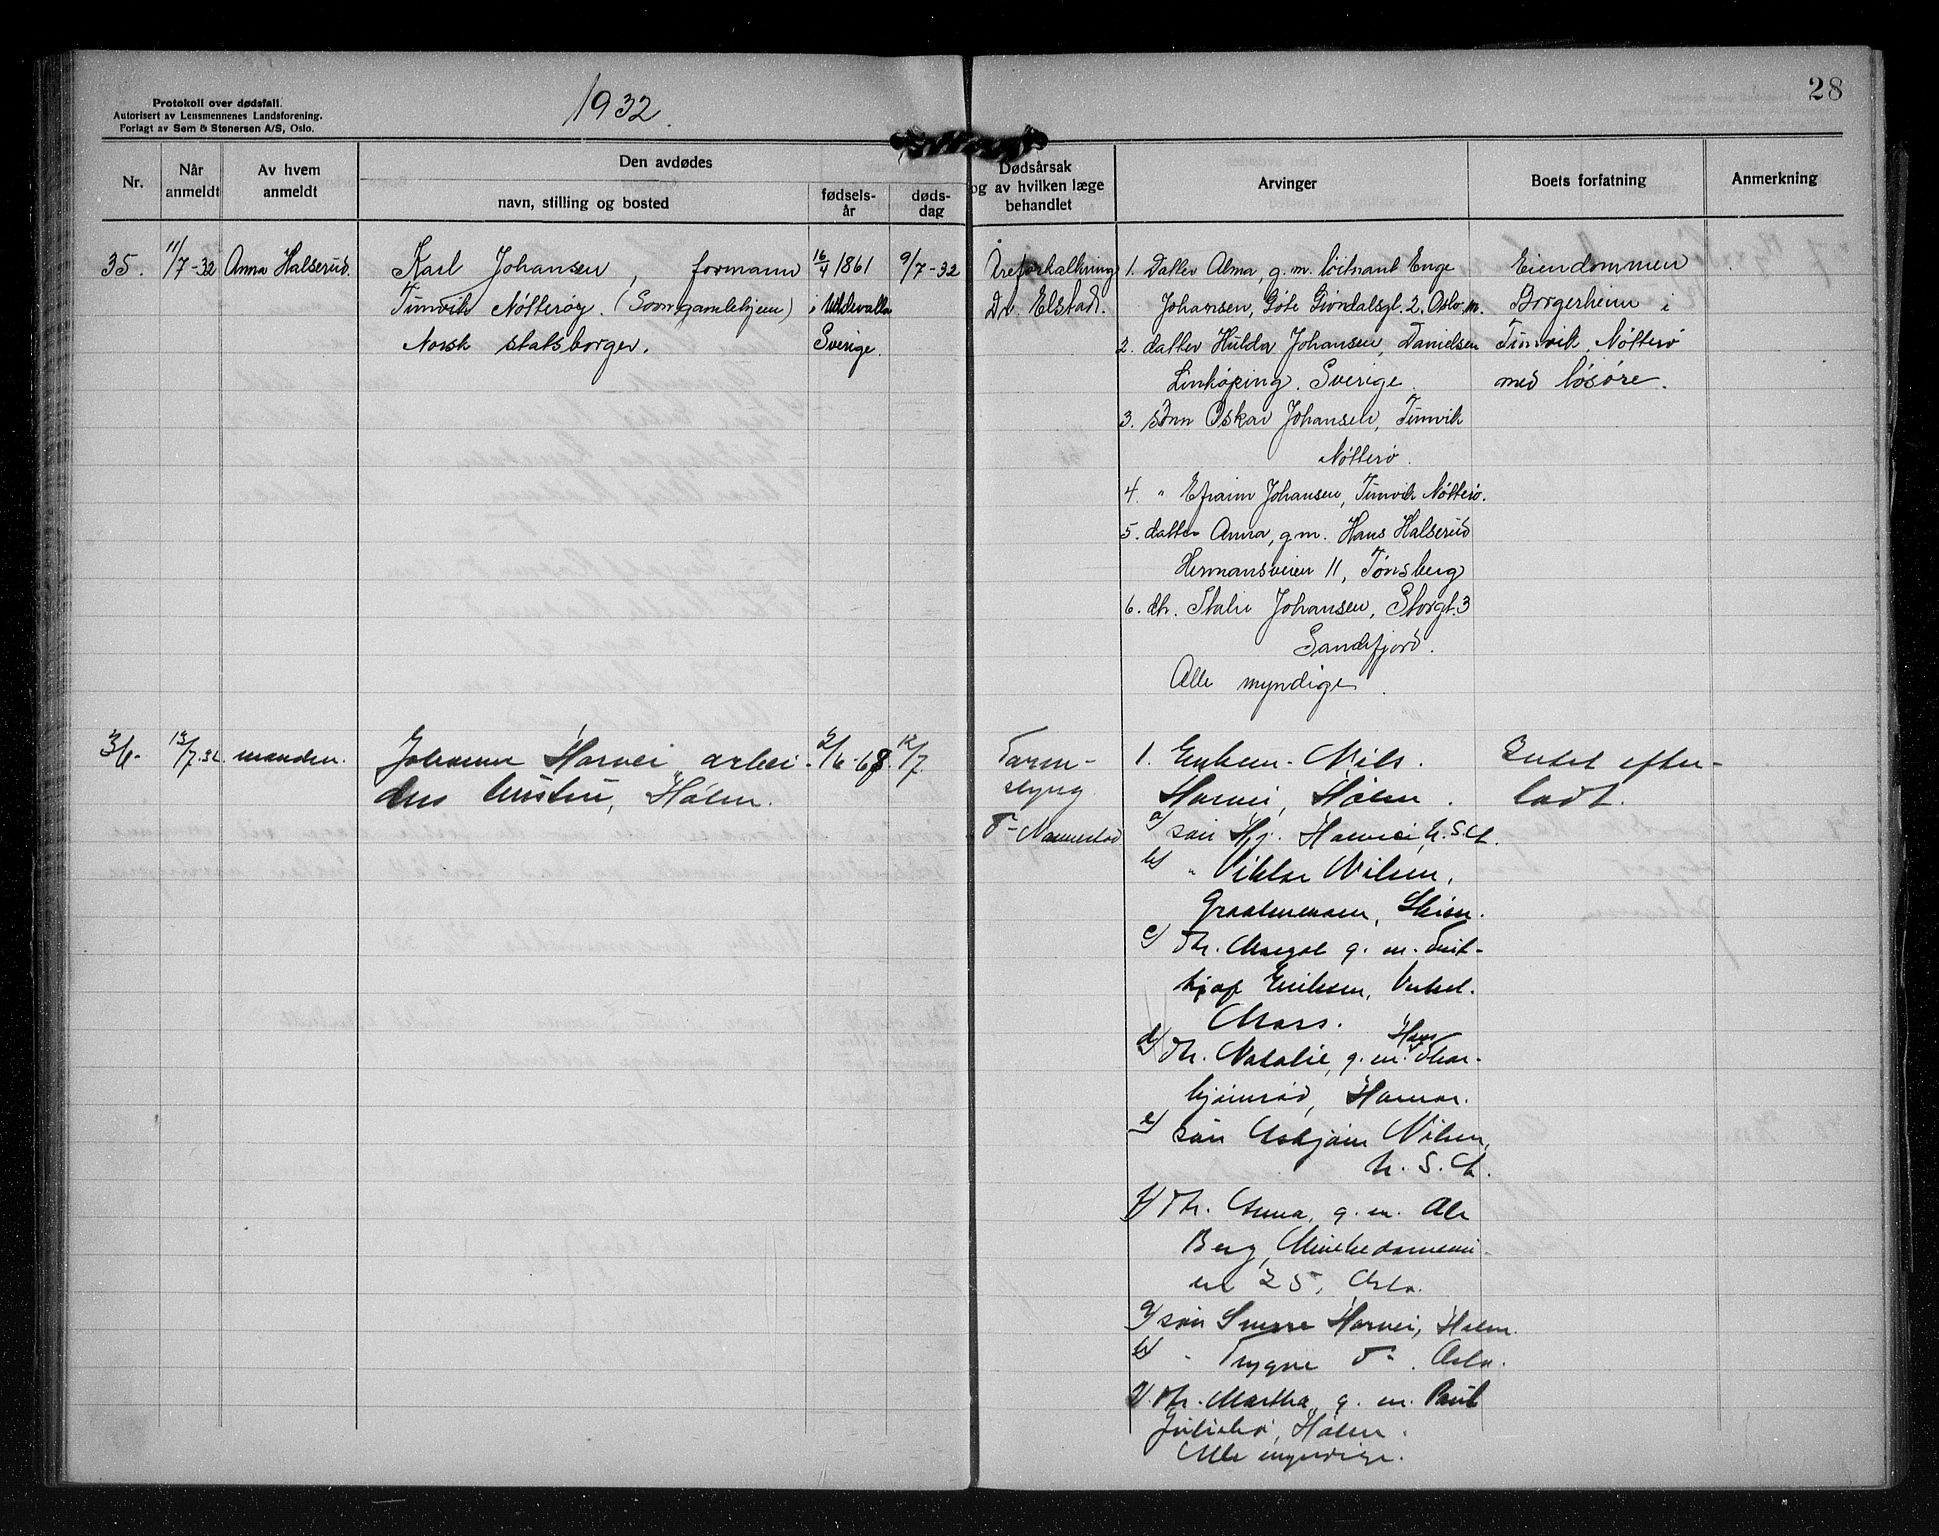 Protokoll over dødsfall.
Autorisert av Lensmennenes Landsforening.
Forlagt av Sem & Stenersen A/S, Oslo.
1932
28
Nr.
Når anmeldt
Av hvem anmeldt
Den avdødes
navn, stilling og bosted
fødsels-år
døds-dag
Dødsårsak og av hvilken læge behandlet
Arvinger
Boets forfatning
Anmerkning
35.
11/7-32
Anna Halserud.
Karl Johansen, formann
Tinvik Nøtterøy. (Sem gamlehjem)
Norsk statsborger.
16/4 1861
i Uddevalla
Sverige.
9/7-32
Åreforkalkning
Dr. Elstad.
1. Datter Alma, g.m. løitnant Enge
Johansen, Gøte Giøndalsgt. 2. Oslo
2. datter Hulda Johansen, Danielsen
Linkøping. Sverige.
3. sønn Oskar Johansen, Tinvik
Nøtterø.
4. " Efraim Johansen, Tinvik Nøtterø.
5. datter Anna, g.m. Hans Halserud
Hermansveien 11, Tønsberg
6. dtr. Stalie Johansen, Storgt. 3
Sandefjord.
Alle myndige.
Eiendommen
Borgerheim i
Tinvik, Nøtterø
med løsøre.
36.
13/7.32
manden.
Johanne Harvei, arbei-
ders hustru, Holm.
2/6-68
12/7
Tarm-
slyng
Nannestad
1. Enkem. Nils
Harvei, Holm.
a) søn Hj. Harvei, U.S.A.
b) " Viktor Nilsen,
Graatenmoen, Skien.
c) dtr. Margot g.m. Frit-
hjof Eriksen,
Moss.
d) Dtr. Natalie, g.m. Hans Thor-
bjørnsrød, Hamar.
e) søn Asbjørn Nilsen,
U.S.A.
f) Dtr. Anna, g.m. Ole
Berg, Munkedamsvei-
en 25, Oslo.
g) søn Snorre Harvei, Holm.
h) " Trygve do. Oslo.
i) Dtr. Martha g.m. Paul
Juliebø, Holm.
Alle myndige.
Intet efter-
ladt.